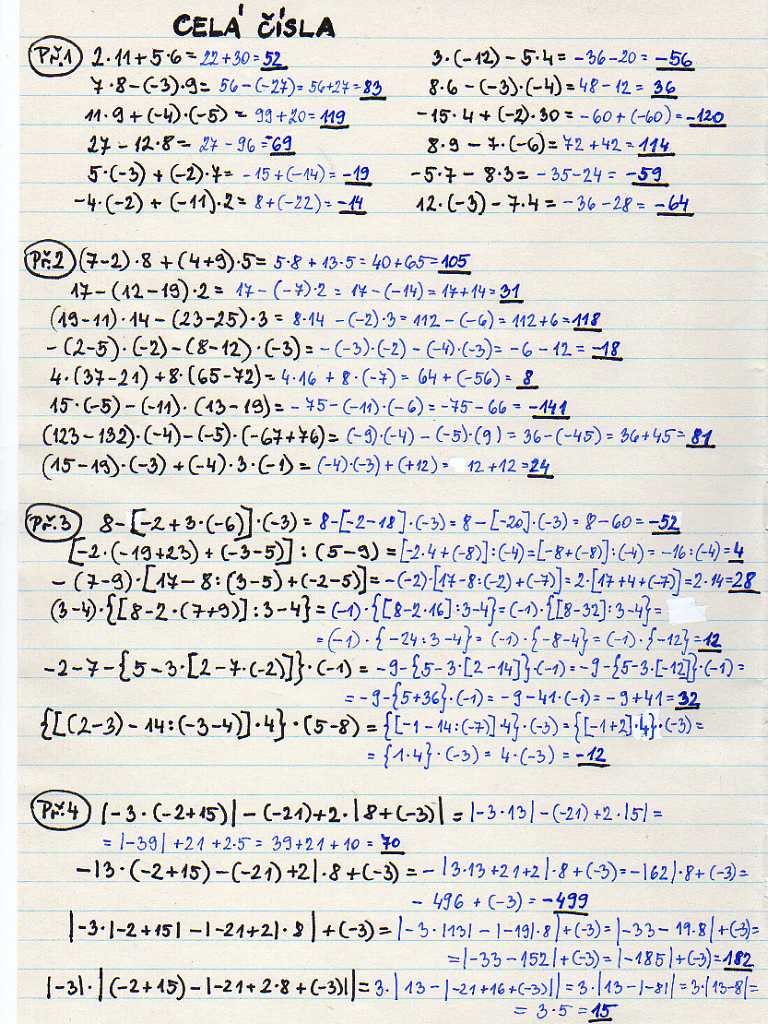 CELÁ ČÍSLA
Př.1 2·11+5·6=22+30=52 3·(-12)-5·4=-36-20=-56
7·8-(-3)·9=56-(-27)=56+27=83 8·6-(-3)·(-4)=48-12=36
11·9+(-4)·(-5)=99+20=119 -15·4+(-2)·30=-60+(-60)=-120
27-12·8=27-96=-69 8·9-7·(-6)=72+42=114
5·(-3)+(-2)·7=-15+(-14)=-19 -5·7-8·3=-35-24=-59
-4·(-2)+(-11)·2=8+(-22)=-14 12·(-3)-7·4=-36-28=-64
Př.2 (7-2)·8+(4+9)·5=5·8+13·5=40+65=105
17-(12-19)·2=17-(-7)·2=17-(-14)=17+14=31
(19-11)·14-(23-25)·3=8·14-(-2)·3=112-(-6)=112+6=118
-(2-5)·(-2)-(8-12)·(-3)=-(-3)·(-2)-(-4)·(-3)=-6-12=-18
4·(37-21)+8·(65-72)=4·16+8·(-7)=64+(-56)=8
15·(-5)-(-11)·(13-19)=-75-(-11)·(-6)=-75-66=-141
(123-132)·(-4)-(-5)·(-67+76)=(-9)·(-4)-(-5)·(9)=36-(-45)=36+45=81
(15-19)·(-3)+(-4)·3·(-1)=(-4)·(-3)+(+12)=12+12=24
Př.3 8-[-2+3·(-6)]·(-3)=8-[-2-18]·(-3)=8-[-20]·(-3)=8-60=-52
[-2·(-19+23)+(-3-5)]:(5-9)=[-2·4+(-8)]:(-4)=[-8+(-8)]:(-4)=-16:(-4)=4
-(7-9)·[17-8:(3-5)+(-2-5)]=-(-2)·[17-8:(-2)+(-7)]=2·[17+4+(-7)]=2·14=28
(3-4)·{[8-2·(7+9)]:3-4}=(-1)·{[8-2·16]:3-4}=(-1)·{[8-32]:3-4}=
=(-1)·{-24:3-4}=(-1)·{-8-4}=(-1)·{-12}=12
-2-7-{5-3·[2-7·(-2)]}·(-1)=-9-{5-3·[2-14]}·(-1)=-9-{5-3·[-12]}·(-1)=
=-9-{5+36}·(-1)=-9-41·(-1)=-9+41=32
{[(2-3)-14:(-3-4)]·4}·(5-8)={[-1-14:(-7)]·4}·(-3)={[-1+2]·4}·(-3)=
={1·4}·(-3)=4·(-3)=-12
Př.4 |-3·(-2+15)|-(-21)+2·|8+(-3)|=|-3·13|-(-21)+2·|5|=
=|-39|+21+2·5=39+21+10=70
-|3·(-2+15)-(-21)+2|·8+(-3)=-|3·13+21+2|·8+(-3)=-|62|·8+(-3)=
-496+(-3)=-499
|-3·|-2+15|-|-21+2|·8|+(-3)=|-3·|13|-|-19|·8|+(-3)=|-33-19·8|+(-3)=
=|-33-152|+(-3)=|-185|+(-3)=182
|-3|·|(-2+15)-|-21+2·8+(-3)||=3·|13-|-21+16+(-3)||=3·|13-|-8||=3·|13-8|=
=3·5=15